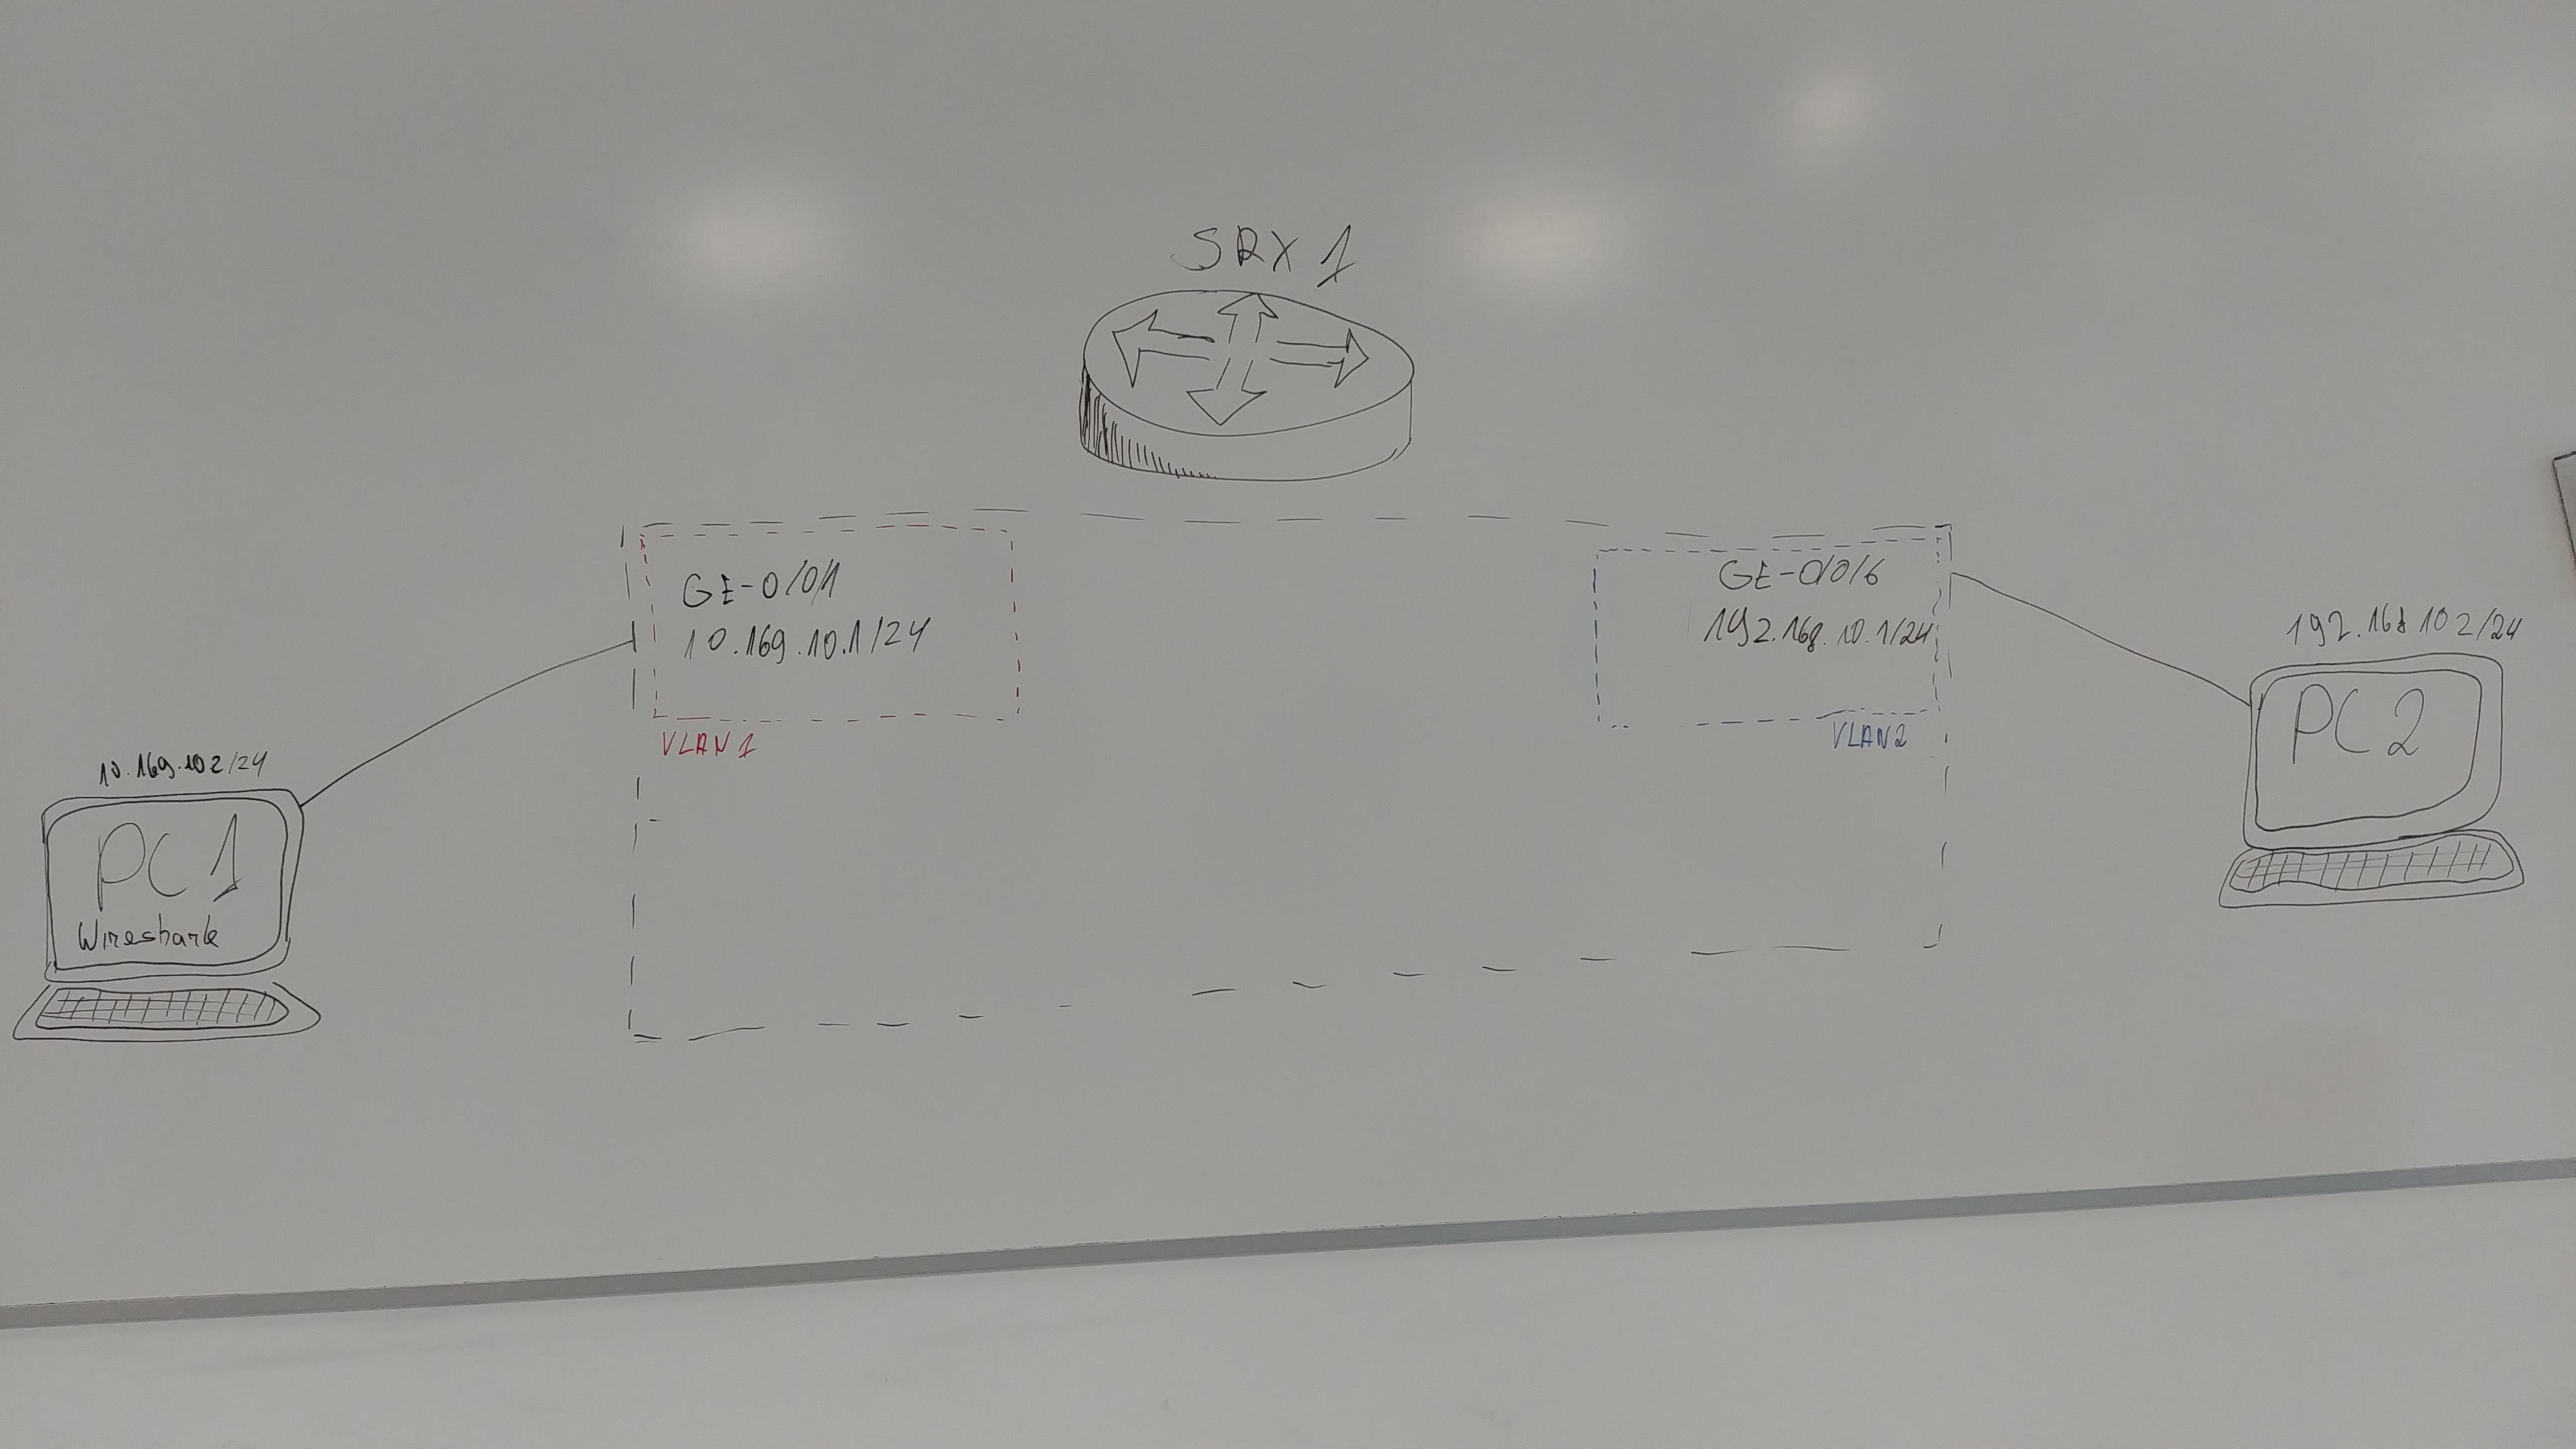 SRX 1
GE-0/0/1
10.169.10.1/24
VLAN1
GE-0/0/6
192.168.10.1/24
VLAN2
10.169.10 2/24
PC1
Wireshark
192.168 10 2/24
PC2